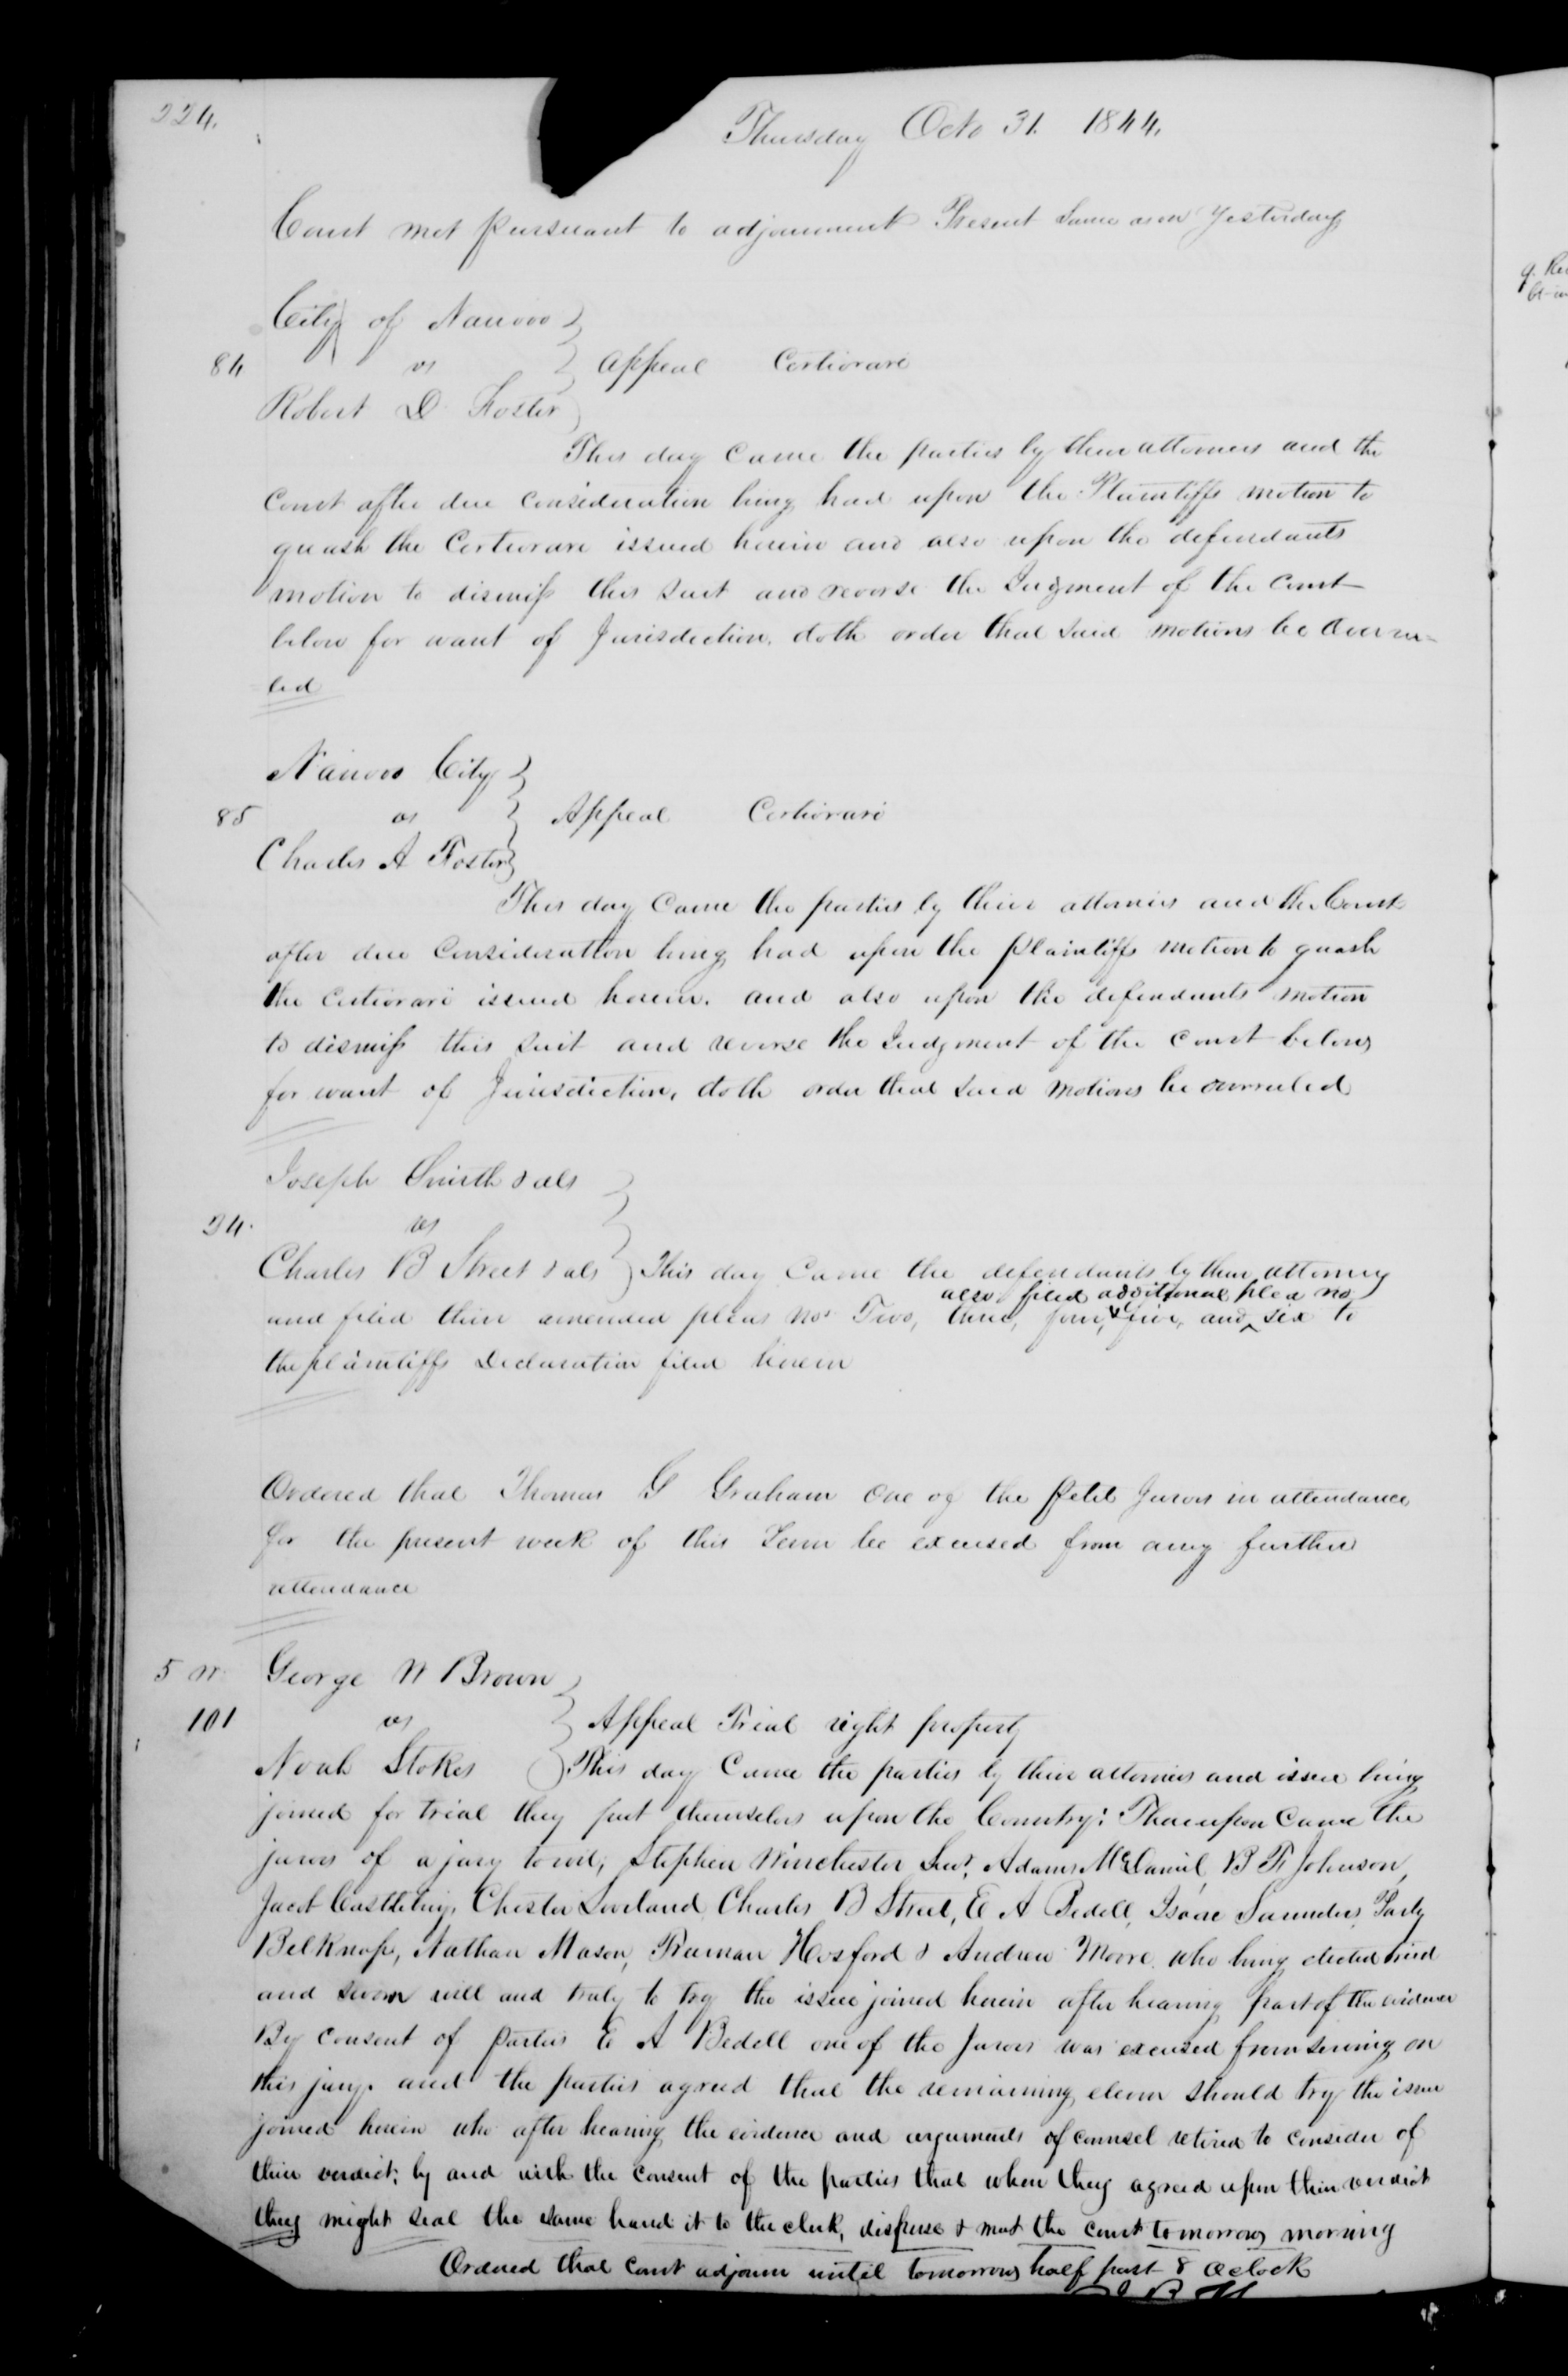 224.
Thursday Octo 31. 1844.
Court met pursuant to adjournment Present Same as on Yesterday
City of Nauvoo
84 vs Appeal Certiorare
Robert D Foster
This day came the parties by their attornies and the
Court after due consideration being had upon the Plaintiffs motion to
quash the Certiorare issued herein and also upon the defendants
motion to dismiss this suit and reverse the Judgment of the Court
below for want of Jurisdiction. doth order that said motions be Overru=
led
Nauvoo City
85 vs Appeal Certiorari
Charles A Foster
This day Came the parties by their attornies and the Court
after due Consideration being had upon the plaintiffs motion to quash
the certiorari issued herein. and also upon the defendants motion
to dismiss this suit and reverse the Judgment of the Court below
for want of Jurisdiction, doth order that said motions be overruled
Joseph Smith & als
24. vs
Charles B Street & als This day Came the defendants by their attorney
also filed additional plea no
and filed their amended pleas nos Two, three, four, & five, and ^ six to
the plaintiffs Declaration filed herein
Ordered that Thomas G Graham One of the petit Jurors in attendance
for the present week of this Term be excused from any further
attendance
5 W. George W Brown
101 vs Appeal Trial right property
Noah Stokes This day Came the parties by their attornies and issue being
joined for trial they put themselves upon the Country: Thereupon Came the
jurors of a jury towit; Stephen Winchester Senr, Adams McDaniel, B F Johnson,
Jacob Castlebury, Chester Loveland, Charles B Street, E A Bedell, Isaac Saunders,
Belknap, Nathan Mason, Truman Hosford & Andrew Moore. who being elected tried
and sworn well and truly to try the issue joined herein after hearing part of the evidence
By consent of parties E A Bedell one of the Jurors was excused from serving on
this jury. and the parties agreed that the remaining eleven should try the issue
joined herein who after hearing the evidence and arguments of counsel retired to consider of
their verdict; by and with the consent of the parties that when they agreed upon their verdict
they might seal the same hand it to the clerk, dispurse & meet the court tomorrow morning
Ordered that Court adjourn until tomorrow half past 8 Oclock